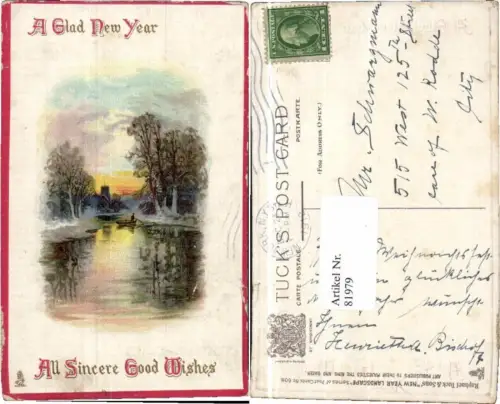 A Glad New Year
All Sincere Good Wishes
U.S. POSTAGE
Mr. Schwarzmann
515 West 125th Street
care of W. Rodde
City
(FOR ADDRESS ONLY.)
POSTKARTE
TUCK'S POST CARD
CARTE POSTALE
Artikel Nr.
81979
Weihnachtsfest
glückliches
wünscht
Ihnen
Henriette Bischoff
Raphael Tuck & Sons' "NEW YEAR LANDSCAPE" Series of Post Cards No.
ART PUBLISHERS TO THEIR MAJESTIES THE KING AND QUEEN.